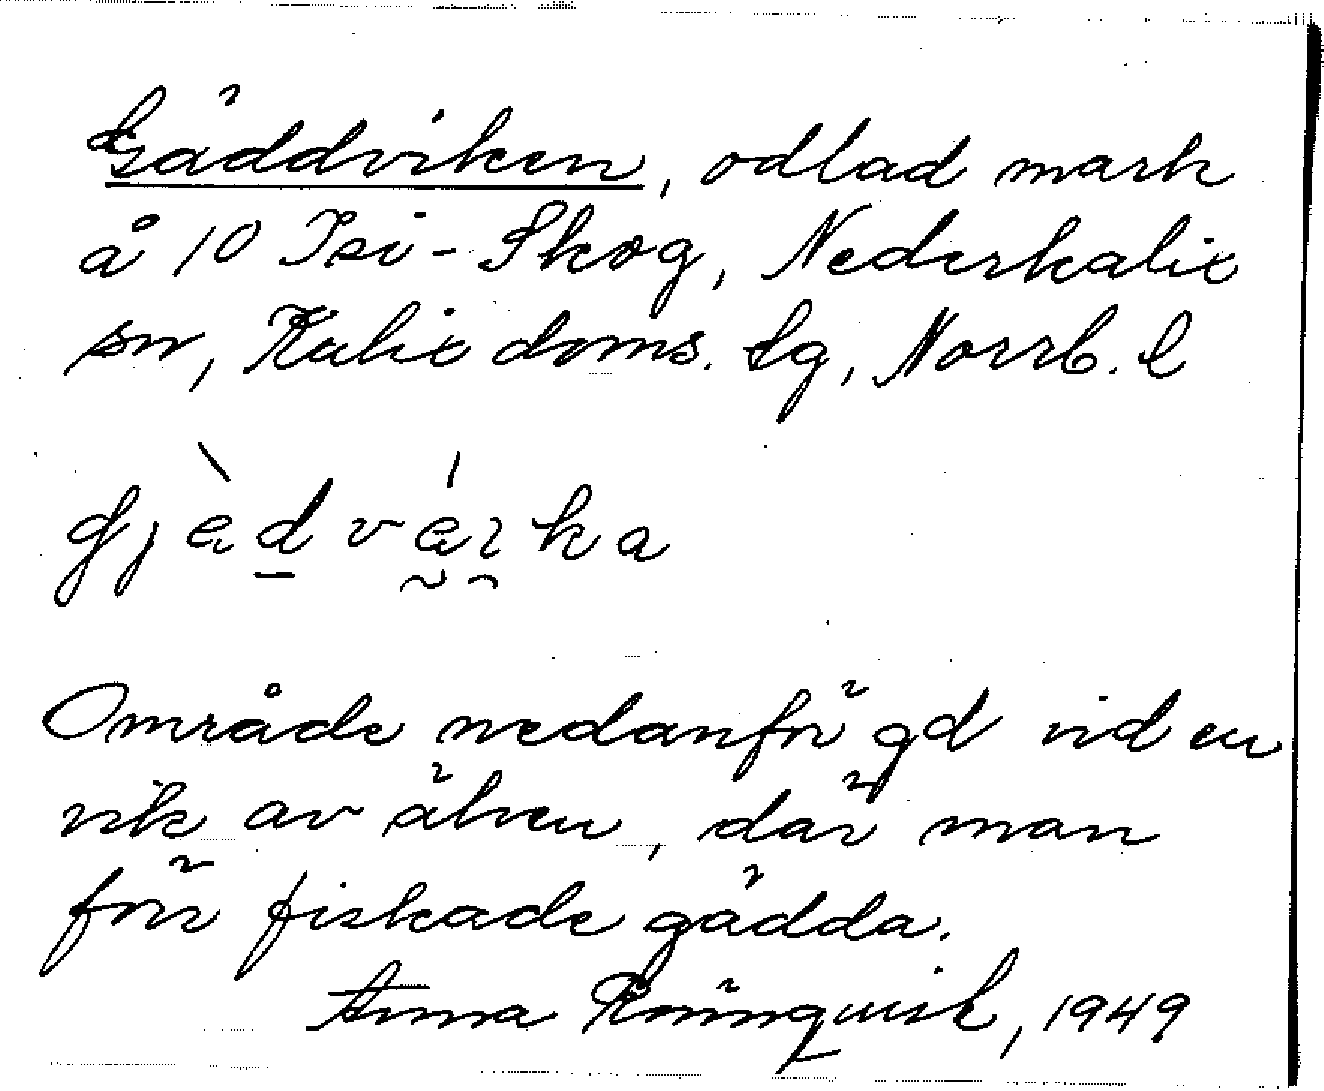 Gäddviken, odlad mark
å 10 Isi-Skog, Nederkalix
sn, Kalix doms. lg, Norrb. l
gjädvä́ika
Område nedanför gd vid en
vik av älven, där man
förr fiskade gädda.
Anna Rönnqvist, 1949